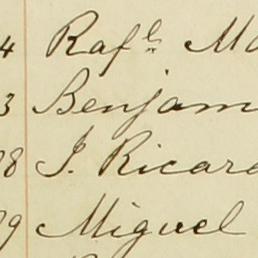 4 Raf.l Ma
3 Benjam
8 J. Ricard
9 Miguel